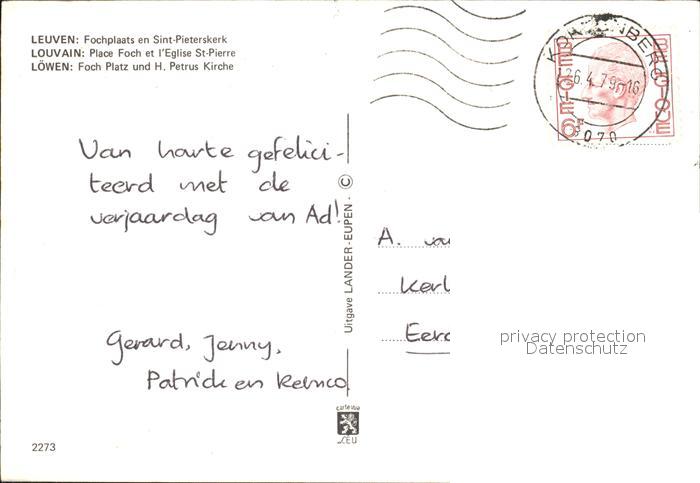 LEUVEN: Fochplaats en Sint-Pieterskerk
LOUVAIN: Place Foch et l'Eglise St-Pierre
LÖWEN: Foch Platz und H. Petrus Kirche
Van harte gefelici-
teerd met de
verjaardag van Ad!
Gerard, Jenny,
Patrick en Remco
2273
Uitgave LANDER-EUPEN - ©
carte vue
LEU
26.4.79
16
3070
BELGIE
BELGIQUE
6F
A. va
Kerl
Eer
privacy protection
Datenschutz